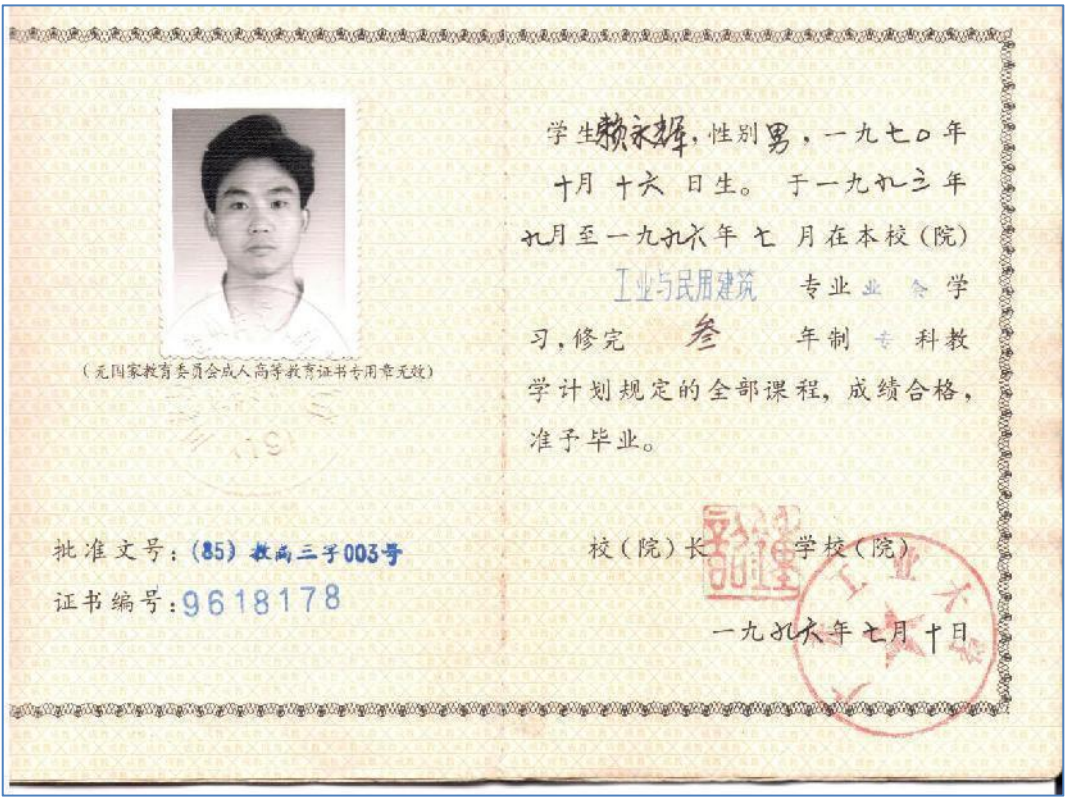 (无国家教育委员会成人高等教育证书专用章无效)
批准文号：(85) 教高三字003号
证书编号：9618178
学生赖永辉，性别男，一九七〇年
十月十六日生。于一九九三年
九月至一九九六年七月在本校(院)
工业与民用建筑 专业业余学
习，修完 叁 年制专科教
学计划规定的全部课程，成绩合格，
准予毕业。
校(院)长 学校(院)
工业大学
一九九六年七月十日